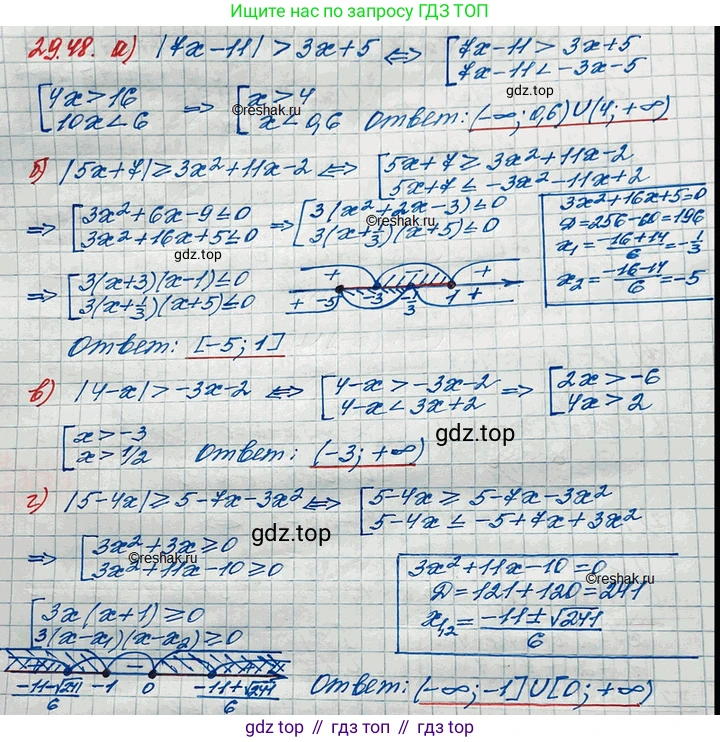 Ищите нас по запросу ГДЗ ТОП
29.48. а) |7x-11| > 3x+5 <=> [7x-11 > 3x+5
7x-11 < -3x-5
gdz.top
[4x > 16
10x < 6 => [x > 4
x < 0,6 Ответ: (-∞; 0,6) U (4; +∞)
©reshak.ru
б) |5x+7| ≥ 3x²+11x-2 <=> [5x+7 ≥ 3x²+11x-2
5x+7 ≤ -3x²-11x+2
=> [3x²+6x-9 ≤ 0
3x²+16x+5 ≤ 0 => [3(x²+2x-3) ≤ 0
3(x+1/3)(x+5) ≤ 0
©reshak.ru
3x²+16x+5=0
D=256-60=196
x₁ = (-16+14)/6 = -1/3
x₂ = (-16-14)/6 = -5
=> [3(x+3)(x-1) ≤ 0
3(x+1/3)(x+5) ≤ 0
gdz.top
+ - +
+ -5 -3 -1/3 1 +
Ответ: [-5; 1]
в) |4-x| > -3x-2 <=> [4-x > -3x-2
4-x < 3x+2 => [2x > -6
4x > 2
[x > -3
x > 1/2 Ответ: (-3; +∞)
gdz.top
г) |5-4x| ≥ 5-7x-3x² <=> [5-4x ≥ 5-7x-3x²
5-4x ≤ -5+7x+3x²
=> [3x²+3x ≥ 0
3x²+11x-10 ≥ 0
gdz.top
©reshak.ru
3x²+11x-10=0
D=121+120=241
x₁,₂ = (-11±√241)/6
©reshak.ru
[3x(x+1) ≥ 0
3(x-x₁)(x-x₂) ≥ 0
-
(-11-√241)/6 -1 0 (-11+√241)/6
Ответ: (-∞; -1] U [0; +∞)
gdz top // гдз топ // gdz.top